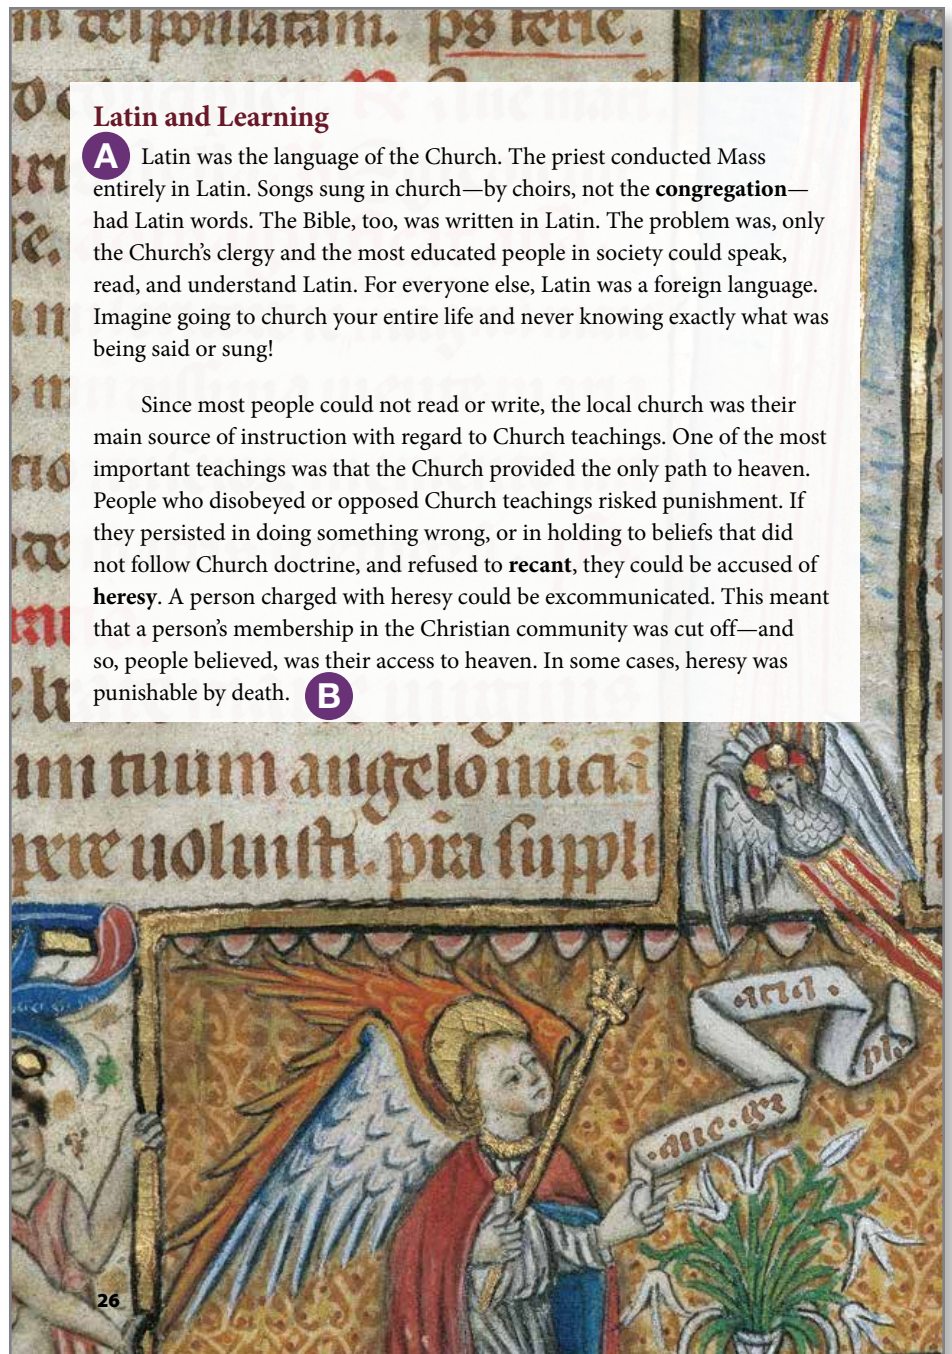 ps
Latin and Learning
A
Latin was the language of the Church. The priest conducted Mass
entirely in Latin. Songs sung in church—by choirs, not the congregation—
had Latin words. The Bible, too, was written in Latin. The problem was, only
the Church’s clergy and the most educated people in society could speak,
read, and understand Latin. For everyone else, Latin was a foreign language.
Imagine going to church your entire life and never knowing exactly what was
being said or sung!
Since most people could not read or write, the local church was their
main source of instruction with regard to Church teachings. One of the most
important teachings was that the Church provided the only path to heaven.
People who disobeyed or opposed Church teachings risked punishment. If
they persisted in doing something wrong, or in holding to beliefs that did
not follow Church doctrine, and refused to recant, they could be accused of
heresy. A person charged with heresy could be excommunicated. This meant
that a person’s membership in the Christian community was cut off—and
so, people believed, was their access to heaven. In some cases, heresy was
punishable by death.
B
tuum angelo
uoluisti. suppli
26